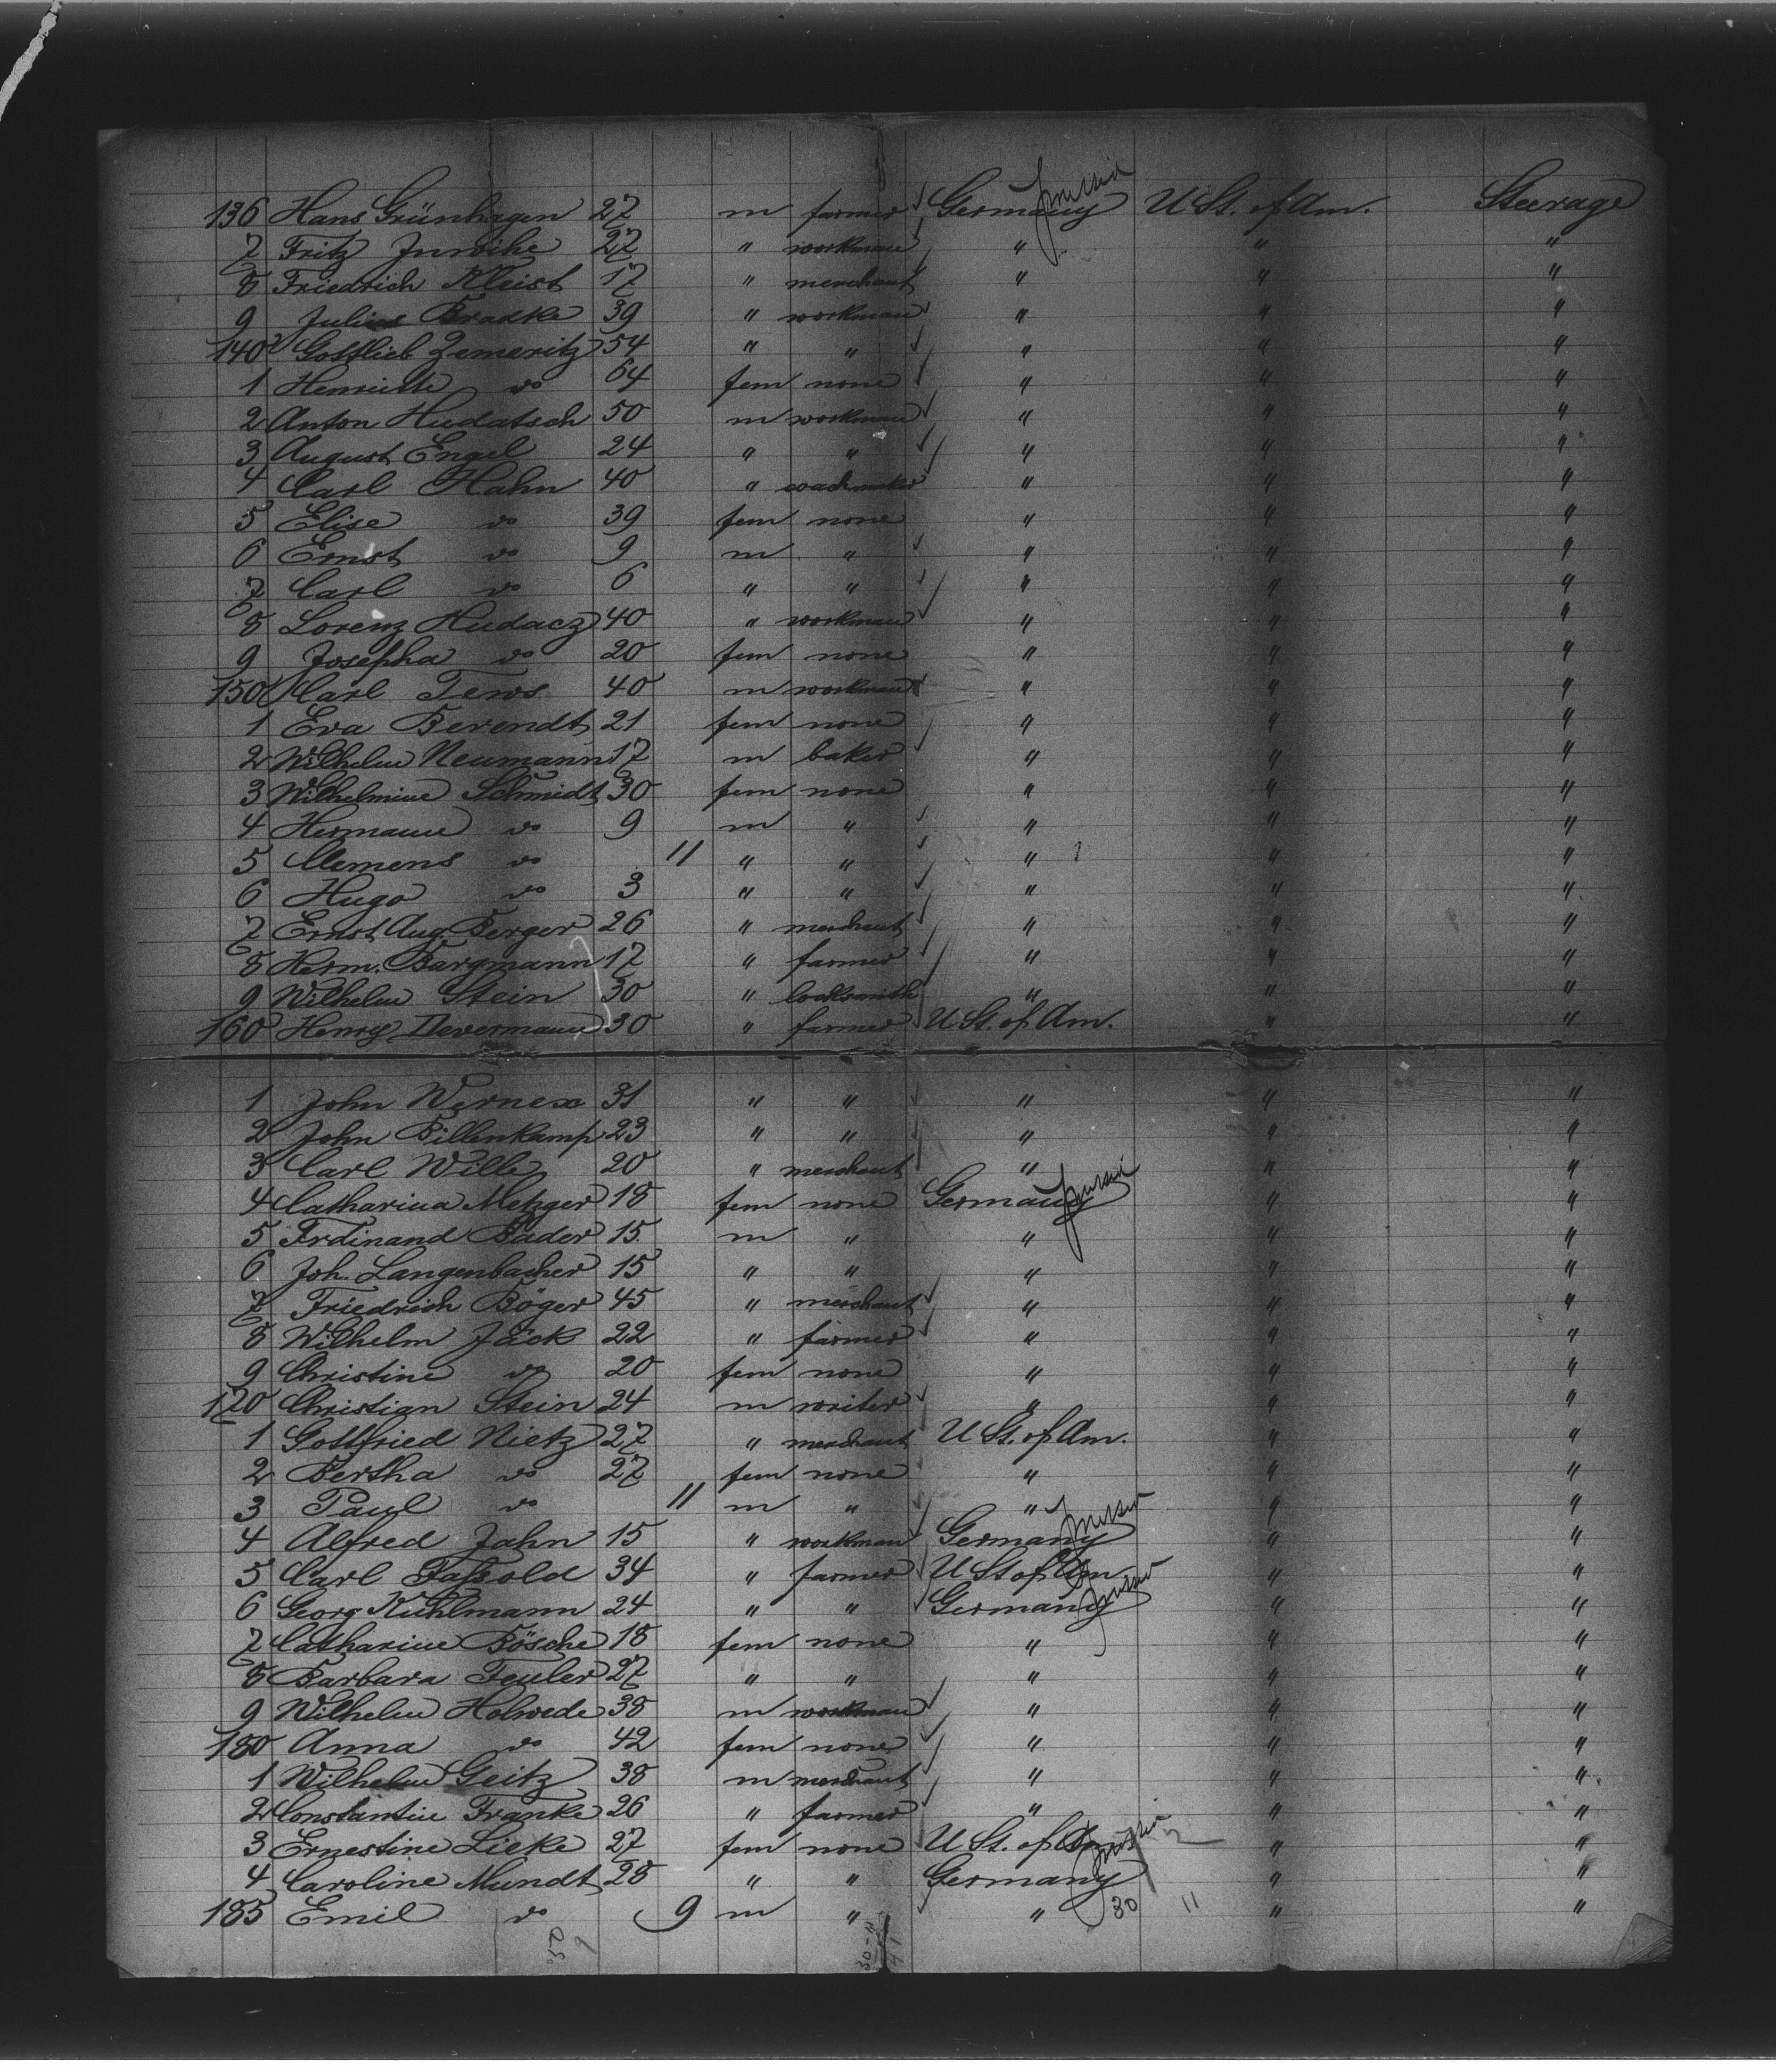 136 Hans Grünhagen 27 m farmer Germany Prussia U St. of Am. Steerage
7 Fritz 27 " workman " " "
8 Friedrich Kleist 17 " merchant " " "
9 Julius Bradke 39 " workman " " "
140 Gottlieb Zemeritz 54 " " " " "
1 Henriette do 64 fem none " " "
2 Anton Hudatsch 50 m workman " " "
3 August Engel 24 " " " " "
4 Carl Hahn 40 " " " "
5 Elise do 39 fem none " " "
6 Ernst do 9 m " " " "
7 Carl do 6 " " " " "
8 Lorenz Hudacz 40 " workman " " "
9 Josepha do 20 fem none " " "
150 Carl Tews 40 m workman " " "
1 Eva Berendt 21 fem none " " "
2 Wilhelm Neumann 17 m baker " " "
3 Wilhelmine Schmidt 30 fem none " " "
4 Hermann do 9 m " " " "
5 Clemens do 11 " " " " "
6 Hugo do 3 " " " " "
7 Ernst Aug. Berger 26 " merchant " " "
8 Herm. Bargmann 17 " farmer " " "
9 Wilhelm Stein 30 " locksmith " " "
160 Henry Devermann 30 " farmer U St. of Am. " "
1 John 31 " " " " "
2 John Billenkamp 23 " " " " "
3 Carl Wille 20 " merchant " " "
4 Catharina Metzger 18 fem none Germany Prussia " "
5 Frdinand Bader 15 m " " " "
6 Joh. Langenbacher 15 " " " " "
7 Friedrich Böger 45 " merchant " " "
8 Wilhelm Jäck 22 " farmer " " "
9 Christine do 20 fem none " " "
170 Christian Stein 24 m writer " " "
1 Gottfried Nietz 27 " merchant U St. of Am. " "
2 Bertha do 27 fem none " " "
3 Paul do 11 m " " " "
4 Alfred Jahn 15 " workman Germany Prussia " "
5 Carl Faßold 34 " farmer U St of Am " "
6 Georg Kuhlmann 24 " " Germany Prussia " "
7 Catharine Bösche 18 fem none " " "
8 Barbara Feuler 27 " " " " "
9 Wilhelm Holwede 38 m workman " " "
180 Anna do 42 fem none " " "
1 Wilhelm Geitz 38 m merchant " " "
2 Constantin Franke 26 " farmer " " "
3 Ernestine Lieke 27 fem none U St. of Am " "
4 Caroline Mundt 28 " " Germany Prussia " "
185 Emil do 9 m " " 30 11 " "